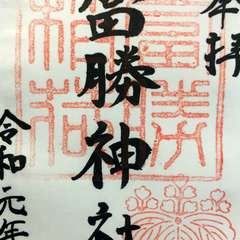 奉拝
當勝神社
令和元年